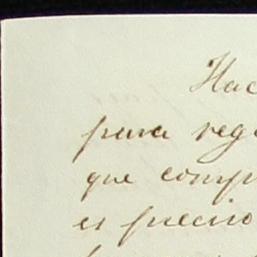 Hac
para reg
que comp
es preciso